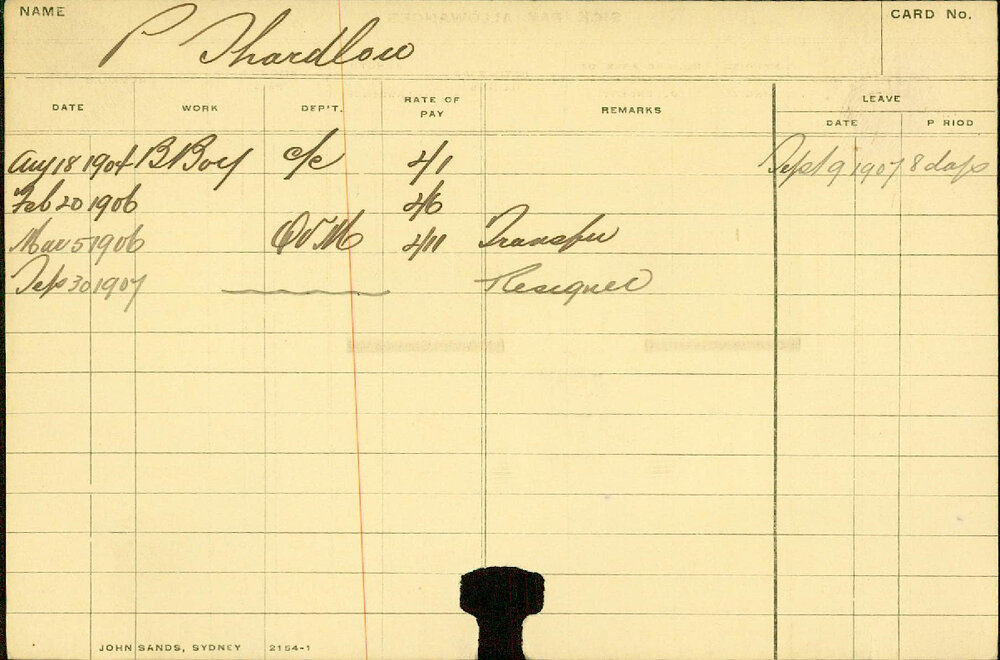 NAME
CARD No.
P Thardlow
DATE WORK DEP'T. RATE OF PAY REMARKS LEAVE
DATE P RIOD
Aug 18 1904 B Boy c/c 2/1 Sept 9 1907 8 days
Feb 20 1906 2/6
Mar 5 1906 OVM 2/11 Transfer
Sep 30 1907 Resigned
JOHN SANDS, SYDNEY 2154-1